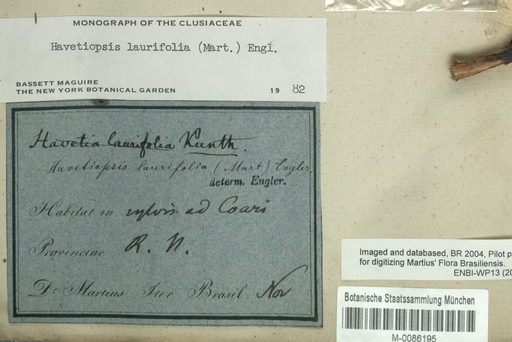 MONOGRAPH OF THE CLUSIACEAE
Havetiopsis laurifolia (Mart.) Engl.
BASSETT MAGUIRE
THE NEW YORK BOTANICAL GARDEN 19 82
Havetia laurifolia Kunth.
Havetiopsis laurifolia (Mart) Engler,
determ. Engler.
Habitat in sylvis ad Coari
Provinciae R. N.
Dr Martius Iter Brasil. Nov
Imaged and databased, BR 2004, Pilot p
for digitizing Martius' Flora Brasiliensis.
ENBI-WP13 (20
Botanische Staatssammlung München
M-0086195